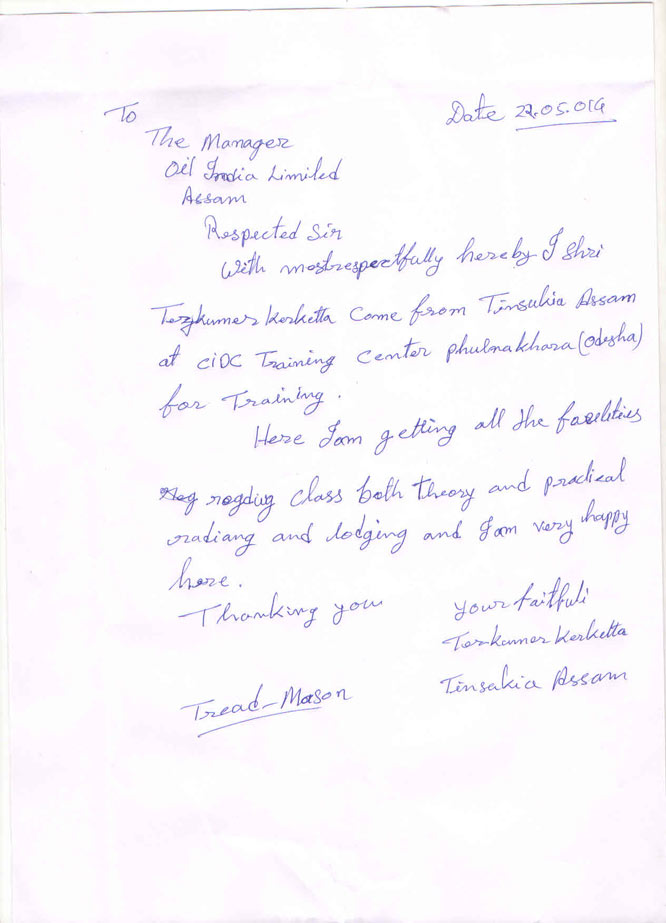 To
Date 22.05.014
The Manager
Oil India Limiled
Assam
Respected Sir
With mostrespectfully hereby I Shri
Terzkumer Kerketta Come from Tinsukia Assam
at CIDC Training Center phulnakhara (odesha)
for Training.
Here Iam getting all the facilities
regding class both theory and pradical
and lodging and Iam very happy
here.
Thanking you
your faitfuli
Terzkumer Kerketta
Tinsakia Assam
Tread-Mason